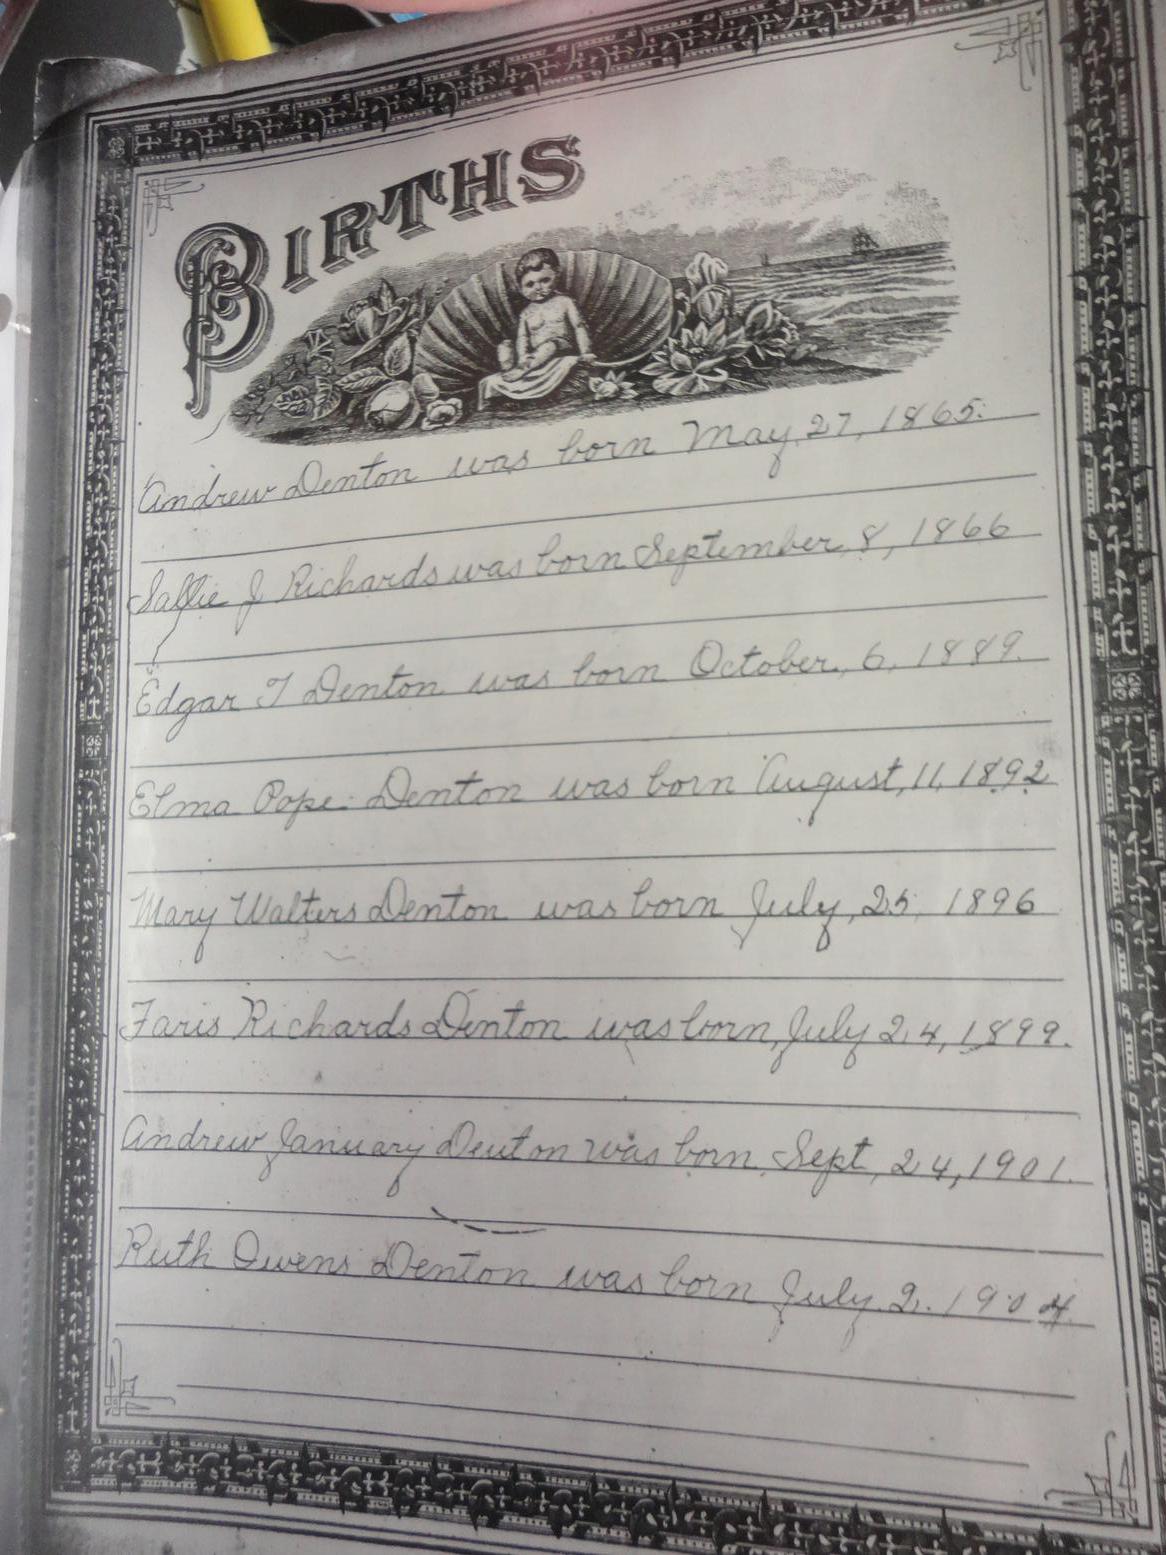 BIRTHS
Andrew Denton was born May 27, 1865.
Sallie J Richards was born September, 8, 1866
Edgar T Denton was born October, 6, 1889.
Elma Pope Denton was born August, 11, 1892
Mary Walters Denton was born July, 25, 1896
Faris Richards Denton was born, July 24, 1899.
Andrew January Denton was born, Sept, 24, 1901.
Ruth Owens Denton was born July. 2. 1904.